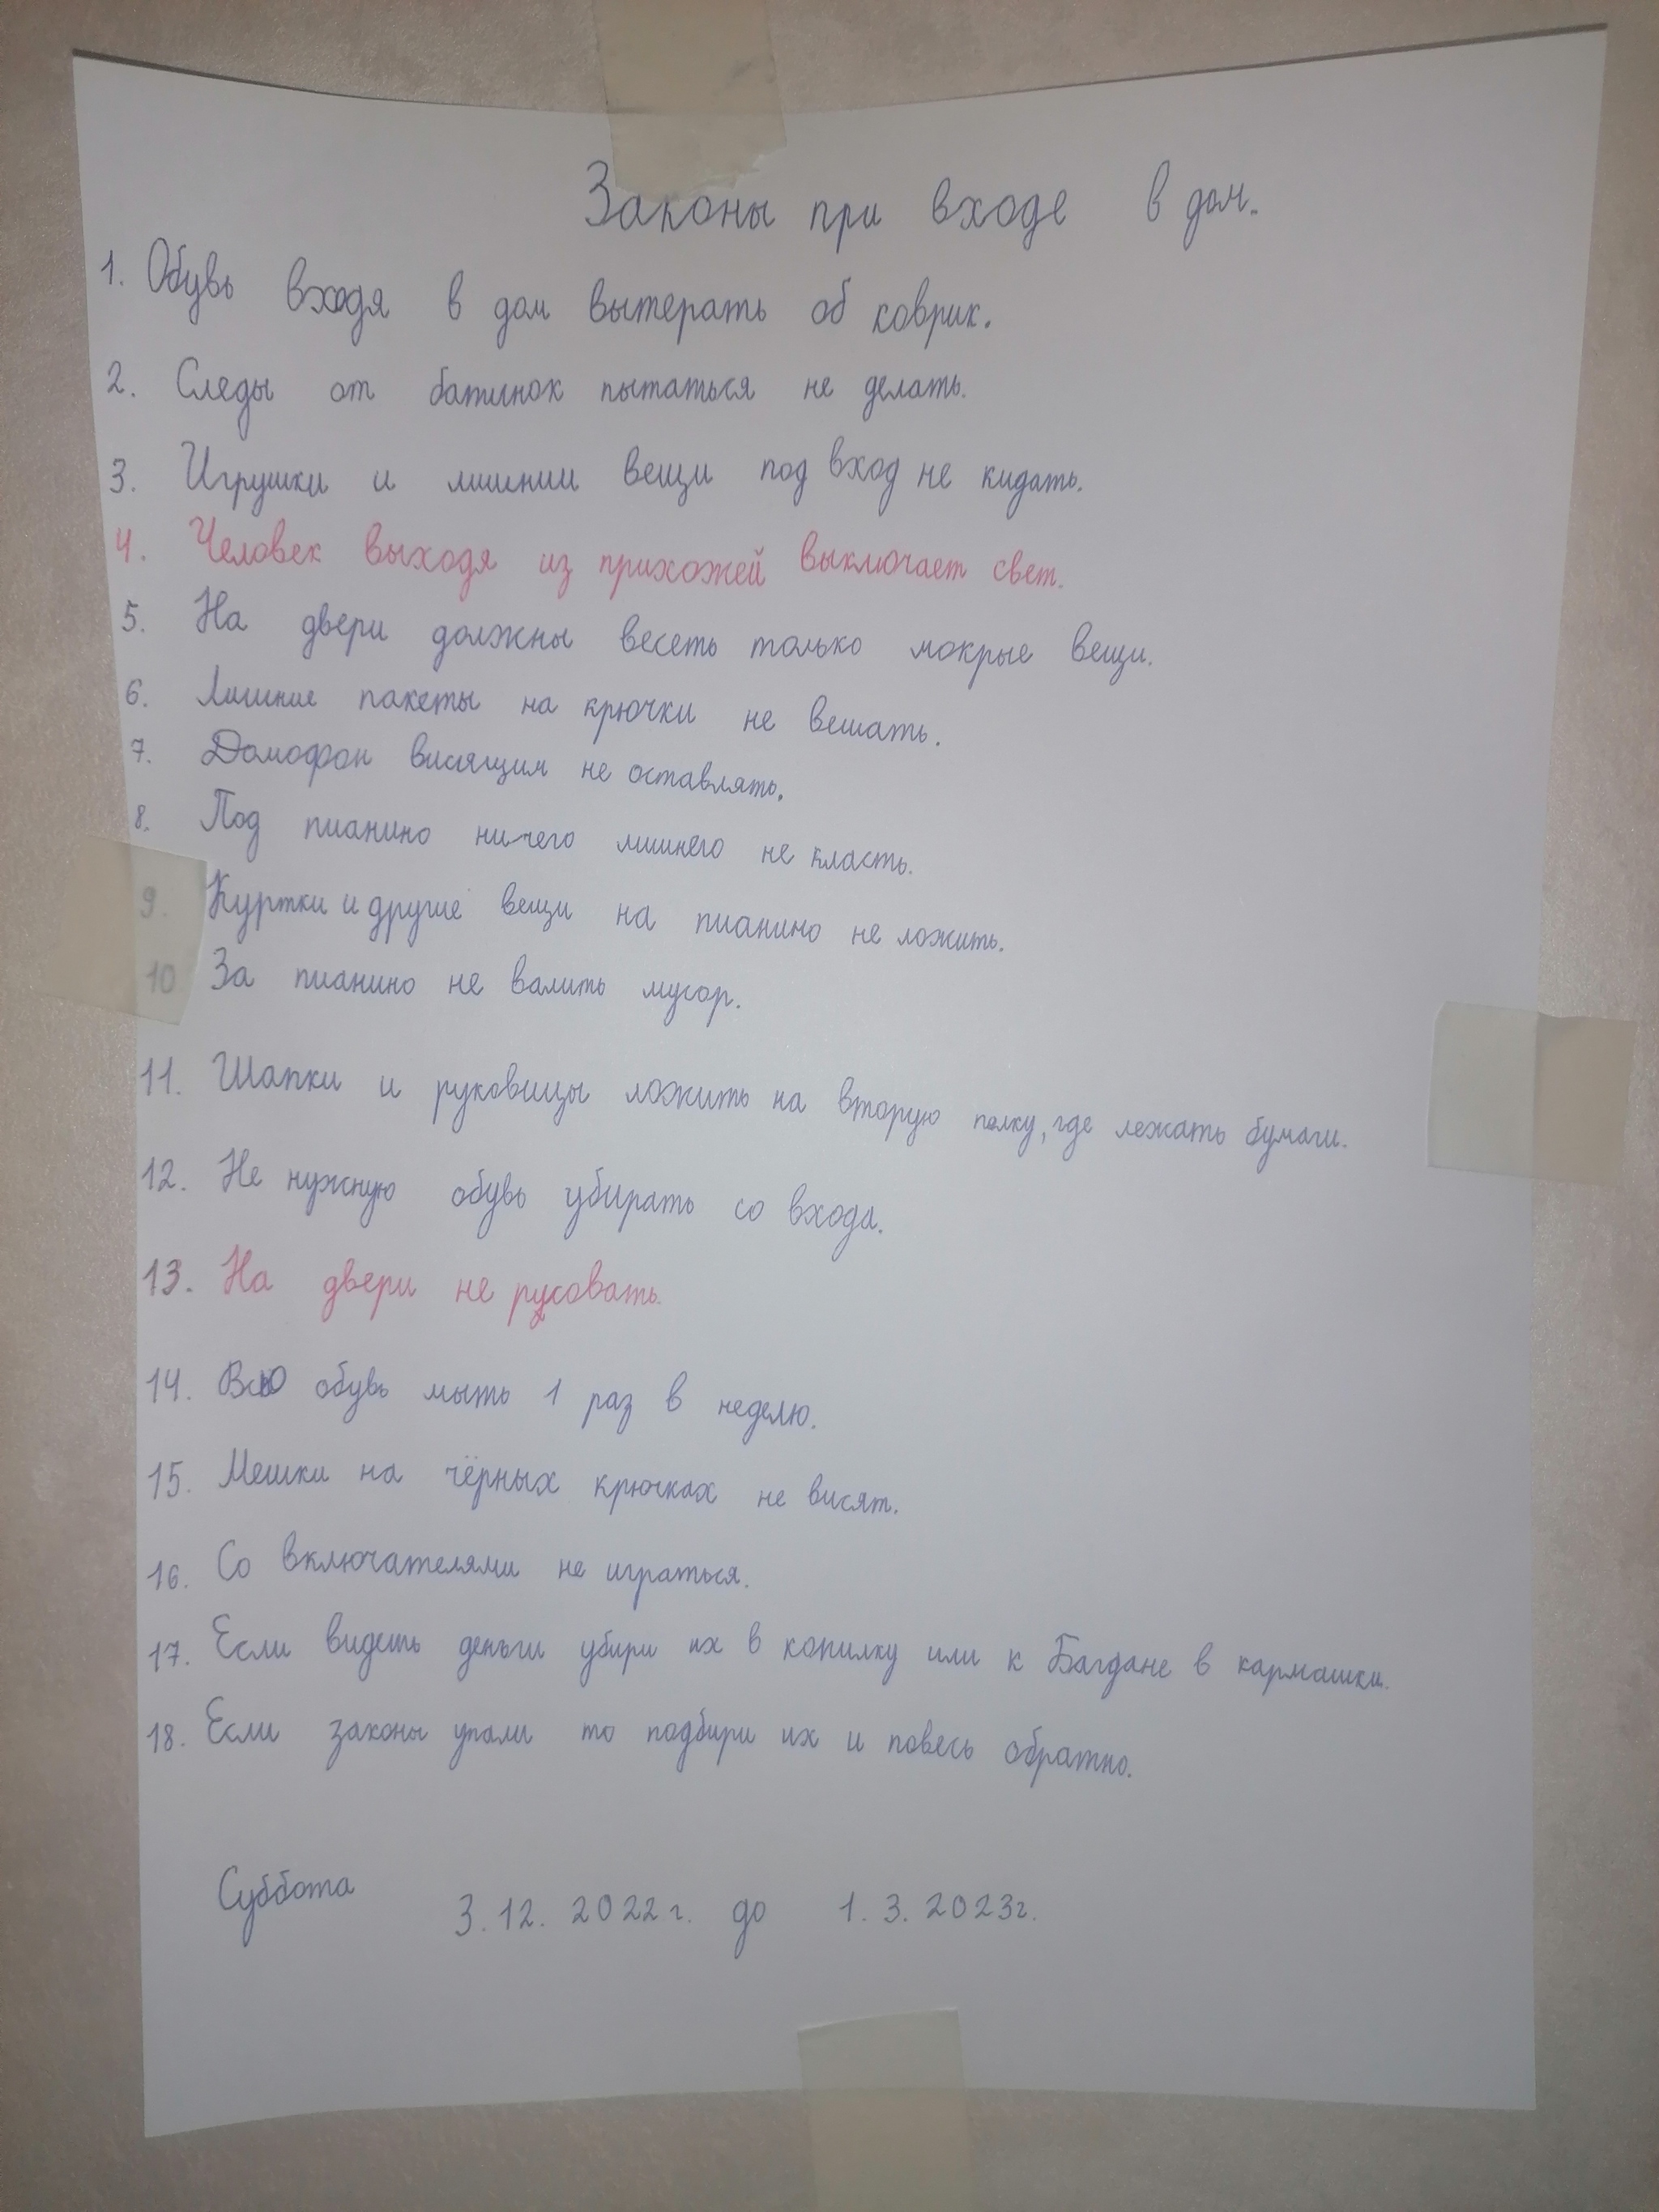 Законы при входе в дом.
1. Обувь входя в дом вытерать об коврик.
2. Следы от батинок пытаться не делать.
3. Игрушки и лишнии вещи под вход не кидать.
4. Человек выходя из прихожей выключает свет.
5. На двери должны весеть только мокрые вещи.
6. Лишние пакеты на крючки не вешать.
7. Домофон висящим не оставлять.
8. Под пианино ничего лишнего не класть.
9. Куртки и другие вещи на пианино не ложить.
10 За пианино не валить мусор.
11. Шапки и руковицы ложить на вторую полку, где лежать бумаги.
12. Не нужную обувь убирать со входа.
13. На двери не русовать.
14. Всю обувь мыть 1 раз в неделю.
15. Мешки на чёрных крючках не висят.
16. Со включателями не играться.
17. Если видеть деньги убири их в копилку или к Багдане в кармашки.
18. Если законы упали то подбири их и повесь обратно.
Суббота 3.12.2022 г. до 1.3.2023г.